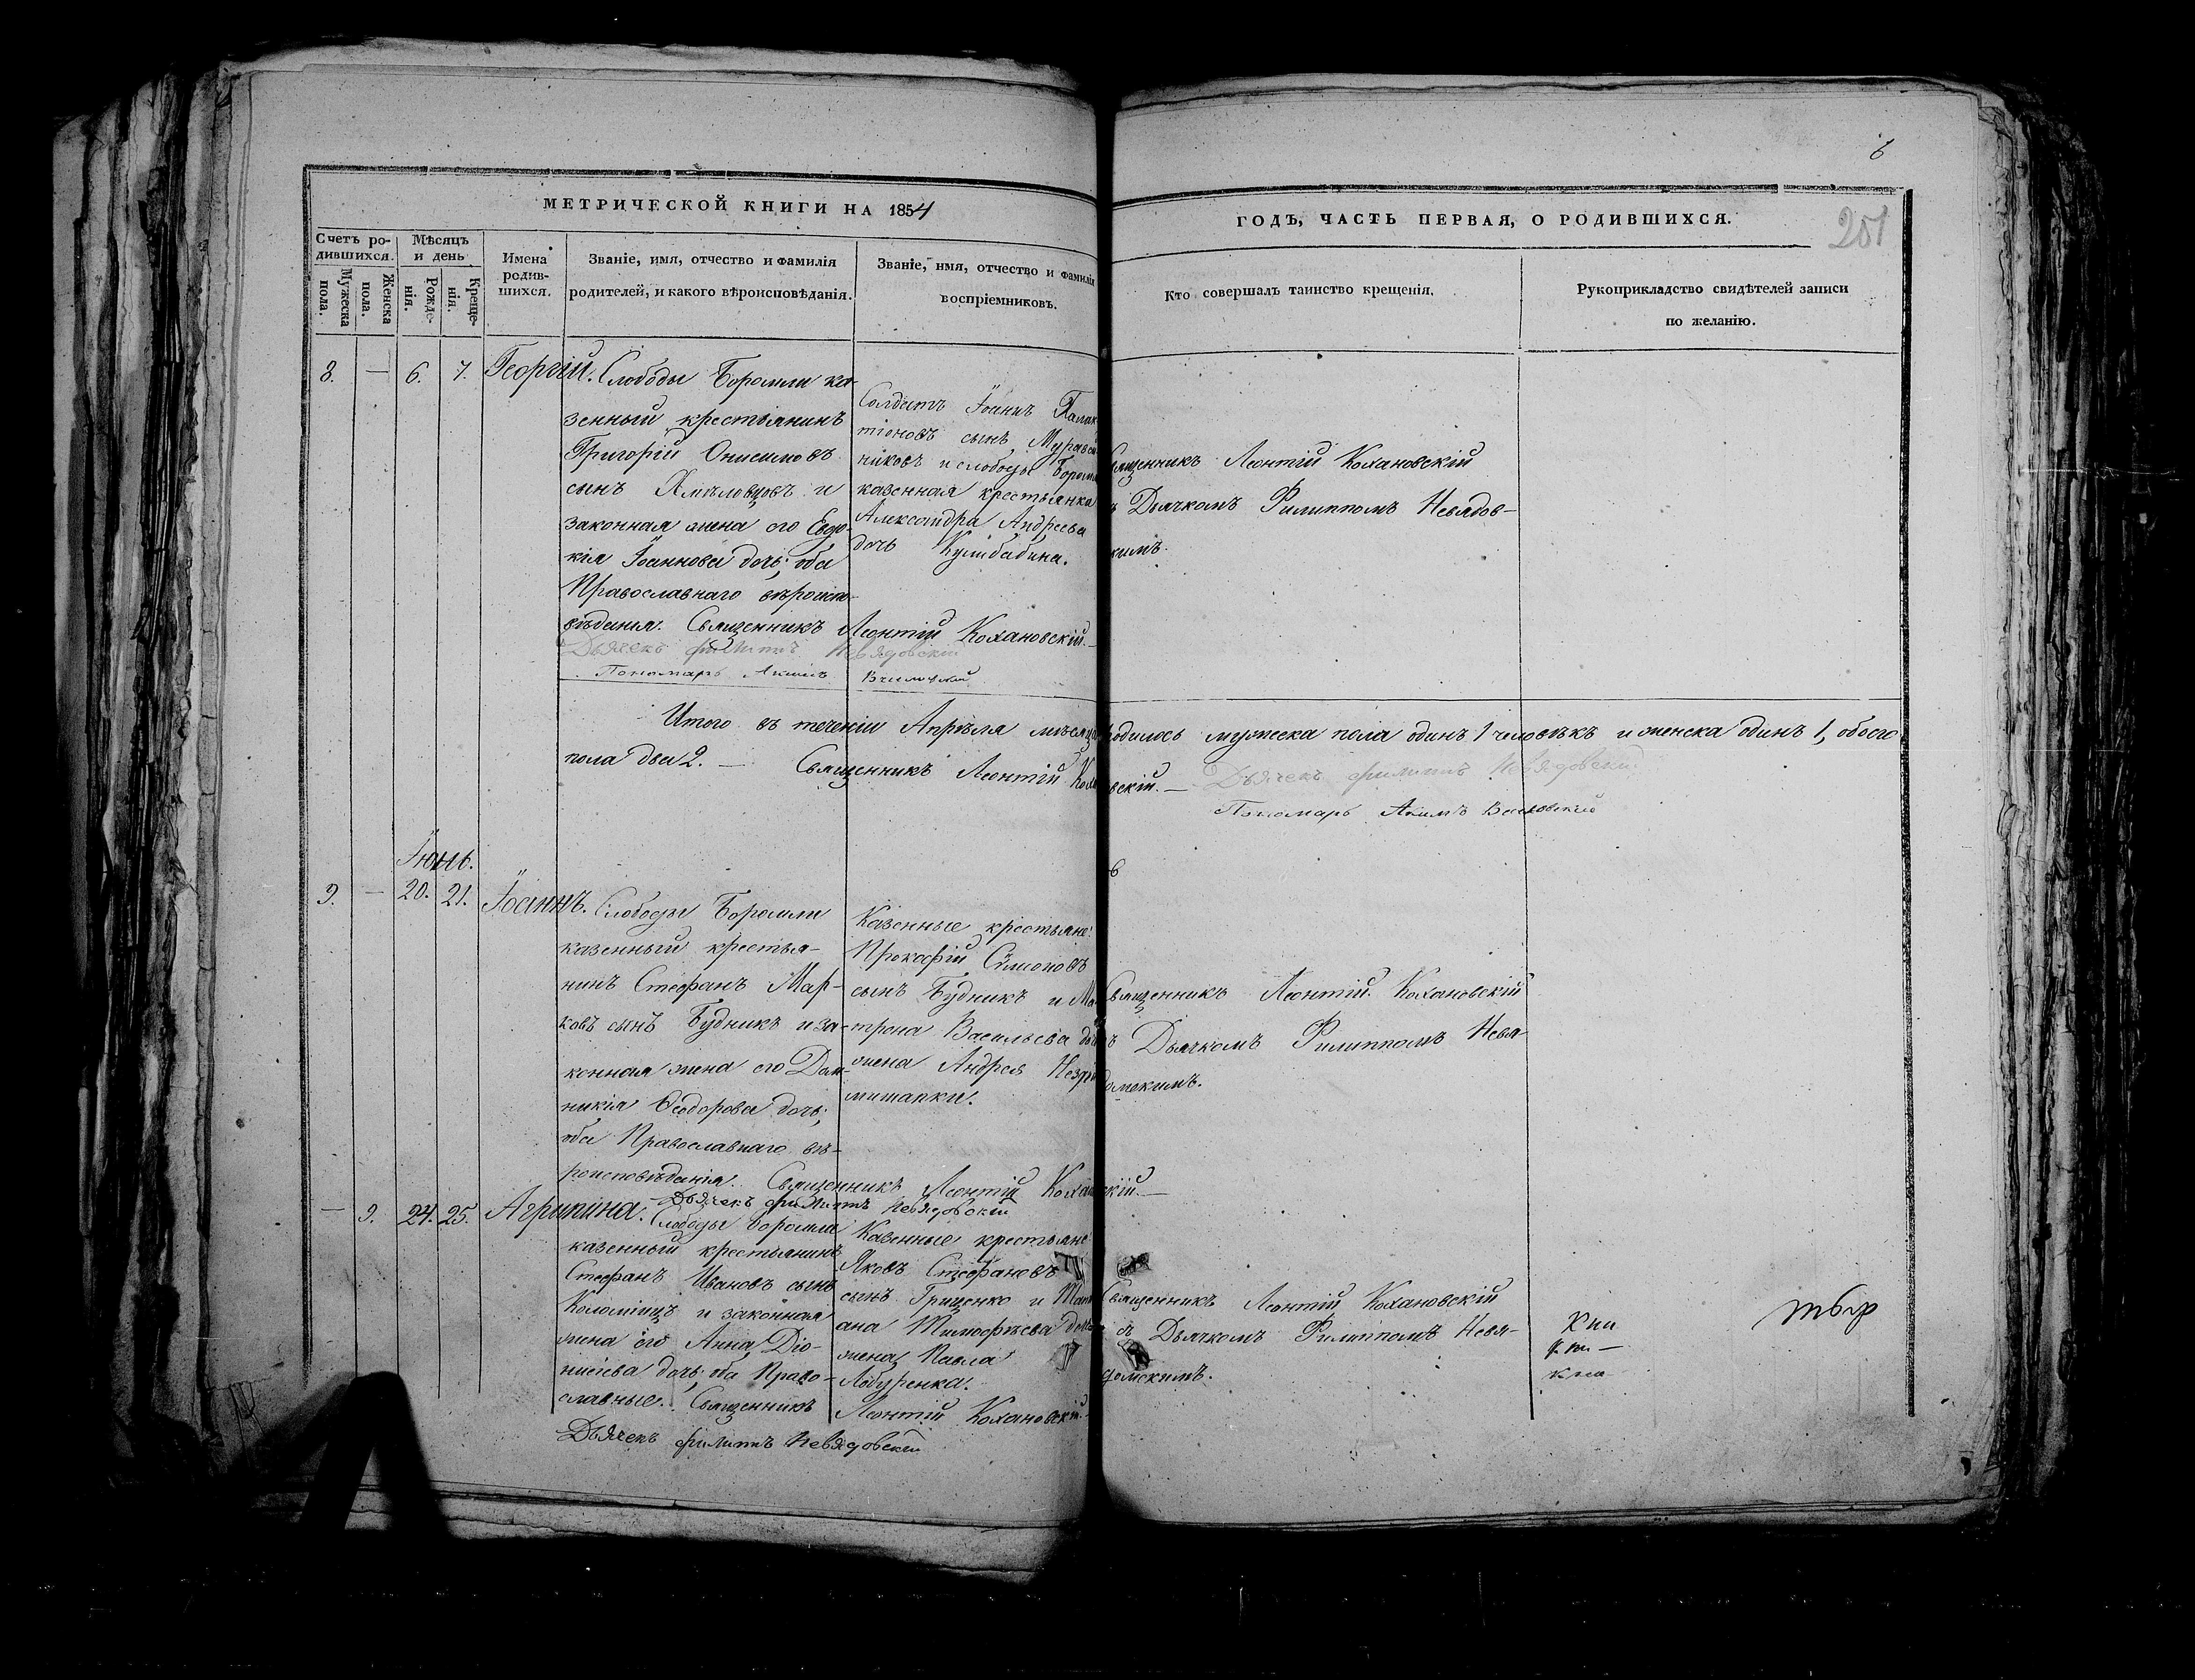 6
201
МЕТРИЧЕСКОЙ КНИГИ НА 1854
ГОДЪ, ЧАСТЬ ПЕРВАЯ, О РОДИВШИХСЯ.
Счетъ ро-
дившихся.
Мужеска
пола.
Женска
пола.
Мѣсяцъ
и день
Рожде-
нія.
Креще-
нія.
Имена
родив-
шихся.
Званіе, имя, отчество и фамилія
родителей, и какого вѣроисповѣданія.
Званіе, имя, отчество и фамилія
воспріемниковъ.
Кто совершалъ таинство крещенія.
Рукоприкладство свидѣтелей записи
по желанію.
8. — 6. 7. Георгій.
Слободы Боромли ка-
зенный крестьянинъ
Григорій Онисимовъ
сынъ и
законная жена его Евдо-
кія Іоаннова дочь; оба
Православнаго вѣроиспо-
вѣданія. Священникъ Леонтій Кохановскій.—
Дьячекъ Филиппъ Невядовскій
Пономарь Акимъ
Солдатъ Іоаннъ Галак
тіоновъ сынъ
никовъ и слободы Боромл
казенная крестьянка
Александра Андреева
дочь Кулибабина.
Священникъ Леонтій Кохановскій
ъ Дьячкомъ Филиппомъ Невядов-
кимъ.
Итого въ теченіи Апрѣля мѣсяца родилось мужеска пола одинъ 1 человѣкъ и женска одинъ 1, обоего
пола два 2. — Священникъ Леонтій Кохановскій.— Дьячекъ Филиппъ Невядовскій
Пономарь Акимъ
Іюнь.
9. — 20. 21. Іоаннъ.
Слободы Боромли
казенный крестья-
нинъ Стефанъ Мар-
ковъ сынъ Будникъ и за-
конная жена его Дом-
никія Ѳеодорова дочь;
оба Православнаго вѣ-
роисповѣданія. Священникъ Леонтій Кохановскій.—
Дьячекъ Филиппъ Невядовскій
Казенные крестьяне:
Прокофій Симоновъ
сынъ Будникъ и Ма
трона Васильева дочь
жена Андрея
Священникъ Леонтій Кохановскій
ъ Дьячкомъ Филиппомъ Невя-
домскимъ.
— 9. 24. 25. Агрипина.
Слободы Боромли
казенный крестьянинъ
Стефанъ Ивановъ сынъ
Коломіецъ и законная
жена его Анна Діо-
нисіева дочь; оба Право-
славные. Священникъ Леонтій Кохановскій.
Дьячекъ Филиппъ Невядовскій
Казенные крестьяне
Яковъ Стефановъ
сынъ Грищенко и
Тимофѣева дочь
жена Павла
Лобуренка.
Священникъ Леонтій Кохановскій
съ Дьячкомъ Филиппомъ Невя-
домскимъ.